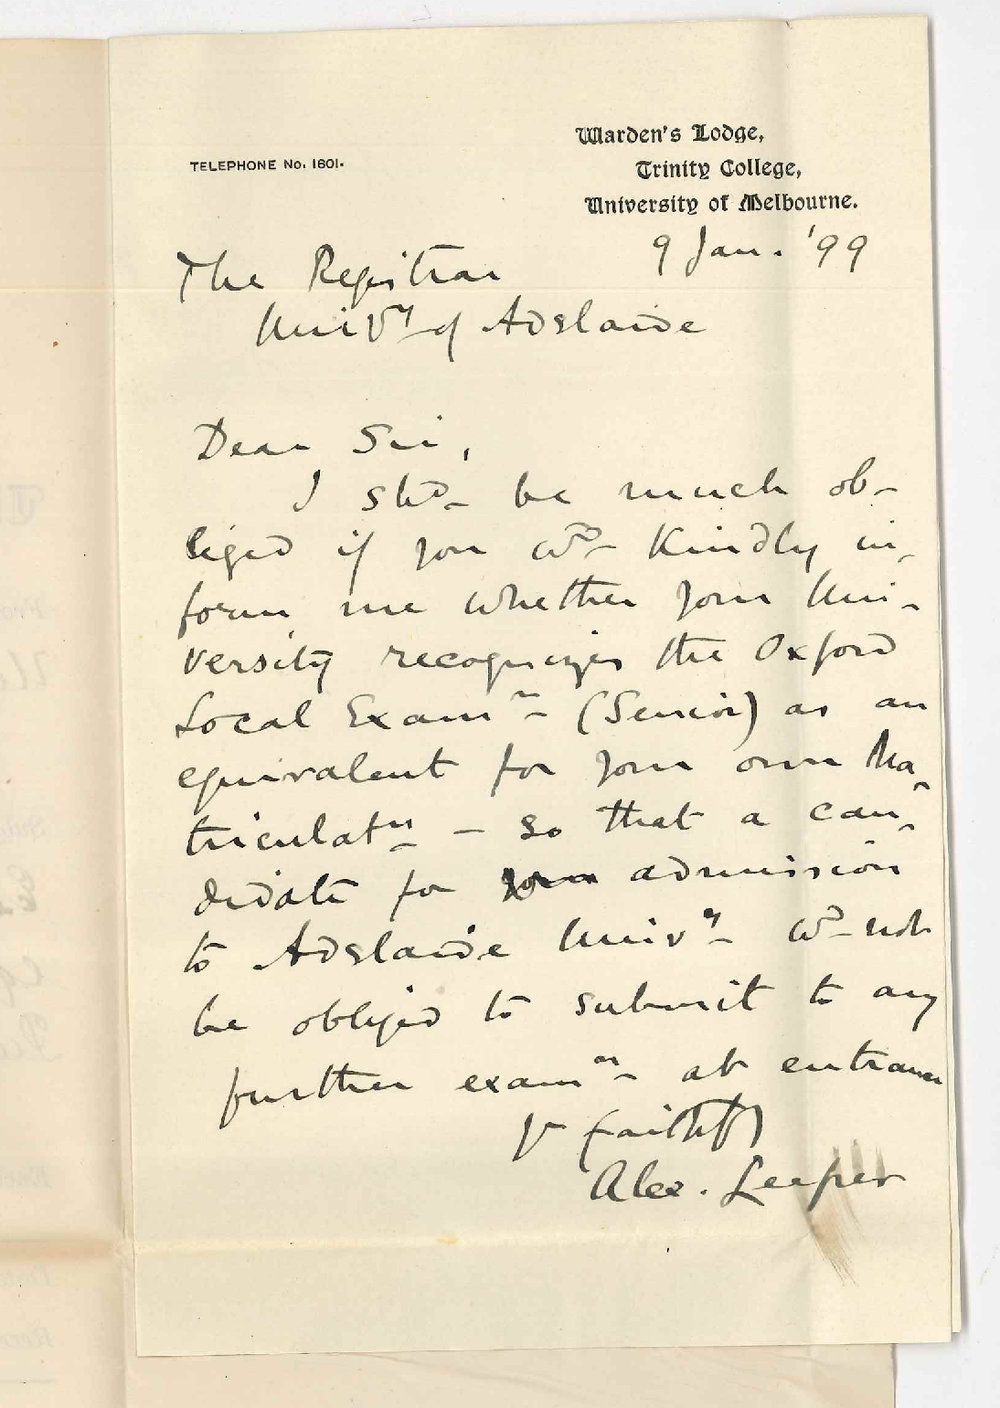 TELEPHONE No. 1601.
Warden's Lodge,
Trinity College,
University of Melbourne.
9 Jan. '99
The Registrar
Univy of Adelaide
Dear Sir,
I shd be much ob-
liged if you wd kindly in-
form me whether your Uni-
versity recognizes the Oxford
Local Examn (Senior) as an
equivalent for your own Ma-
triculatn - so that a can-
didate for your admission
to Adelaide Univy wd not
be obliged to submit to any
further examon at entrance
Yr faithfy
Alex. Leeper